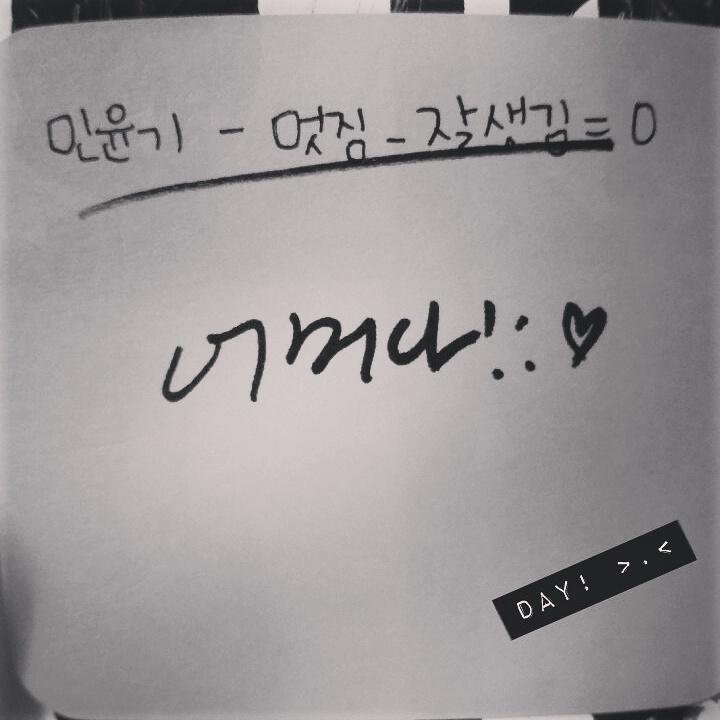 민윤기 - 멋짐 - 잘생김 = 0
! : ♥
DAY! >.<